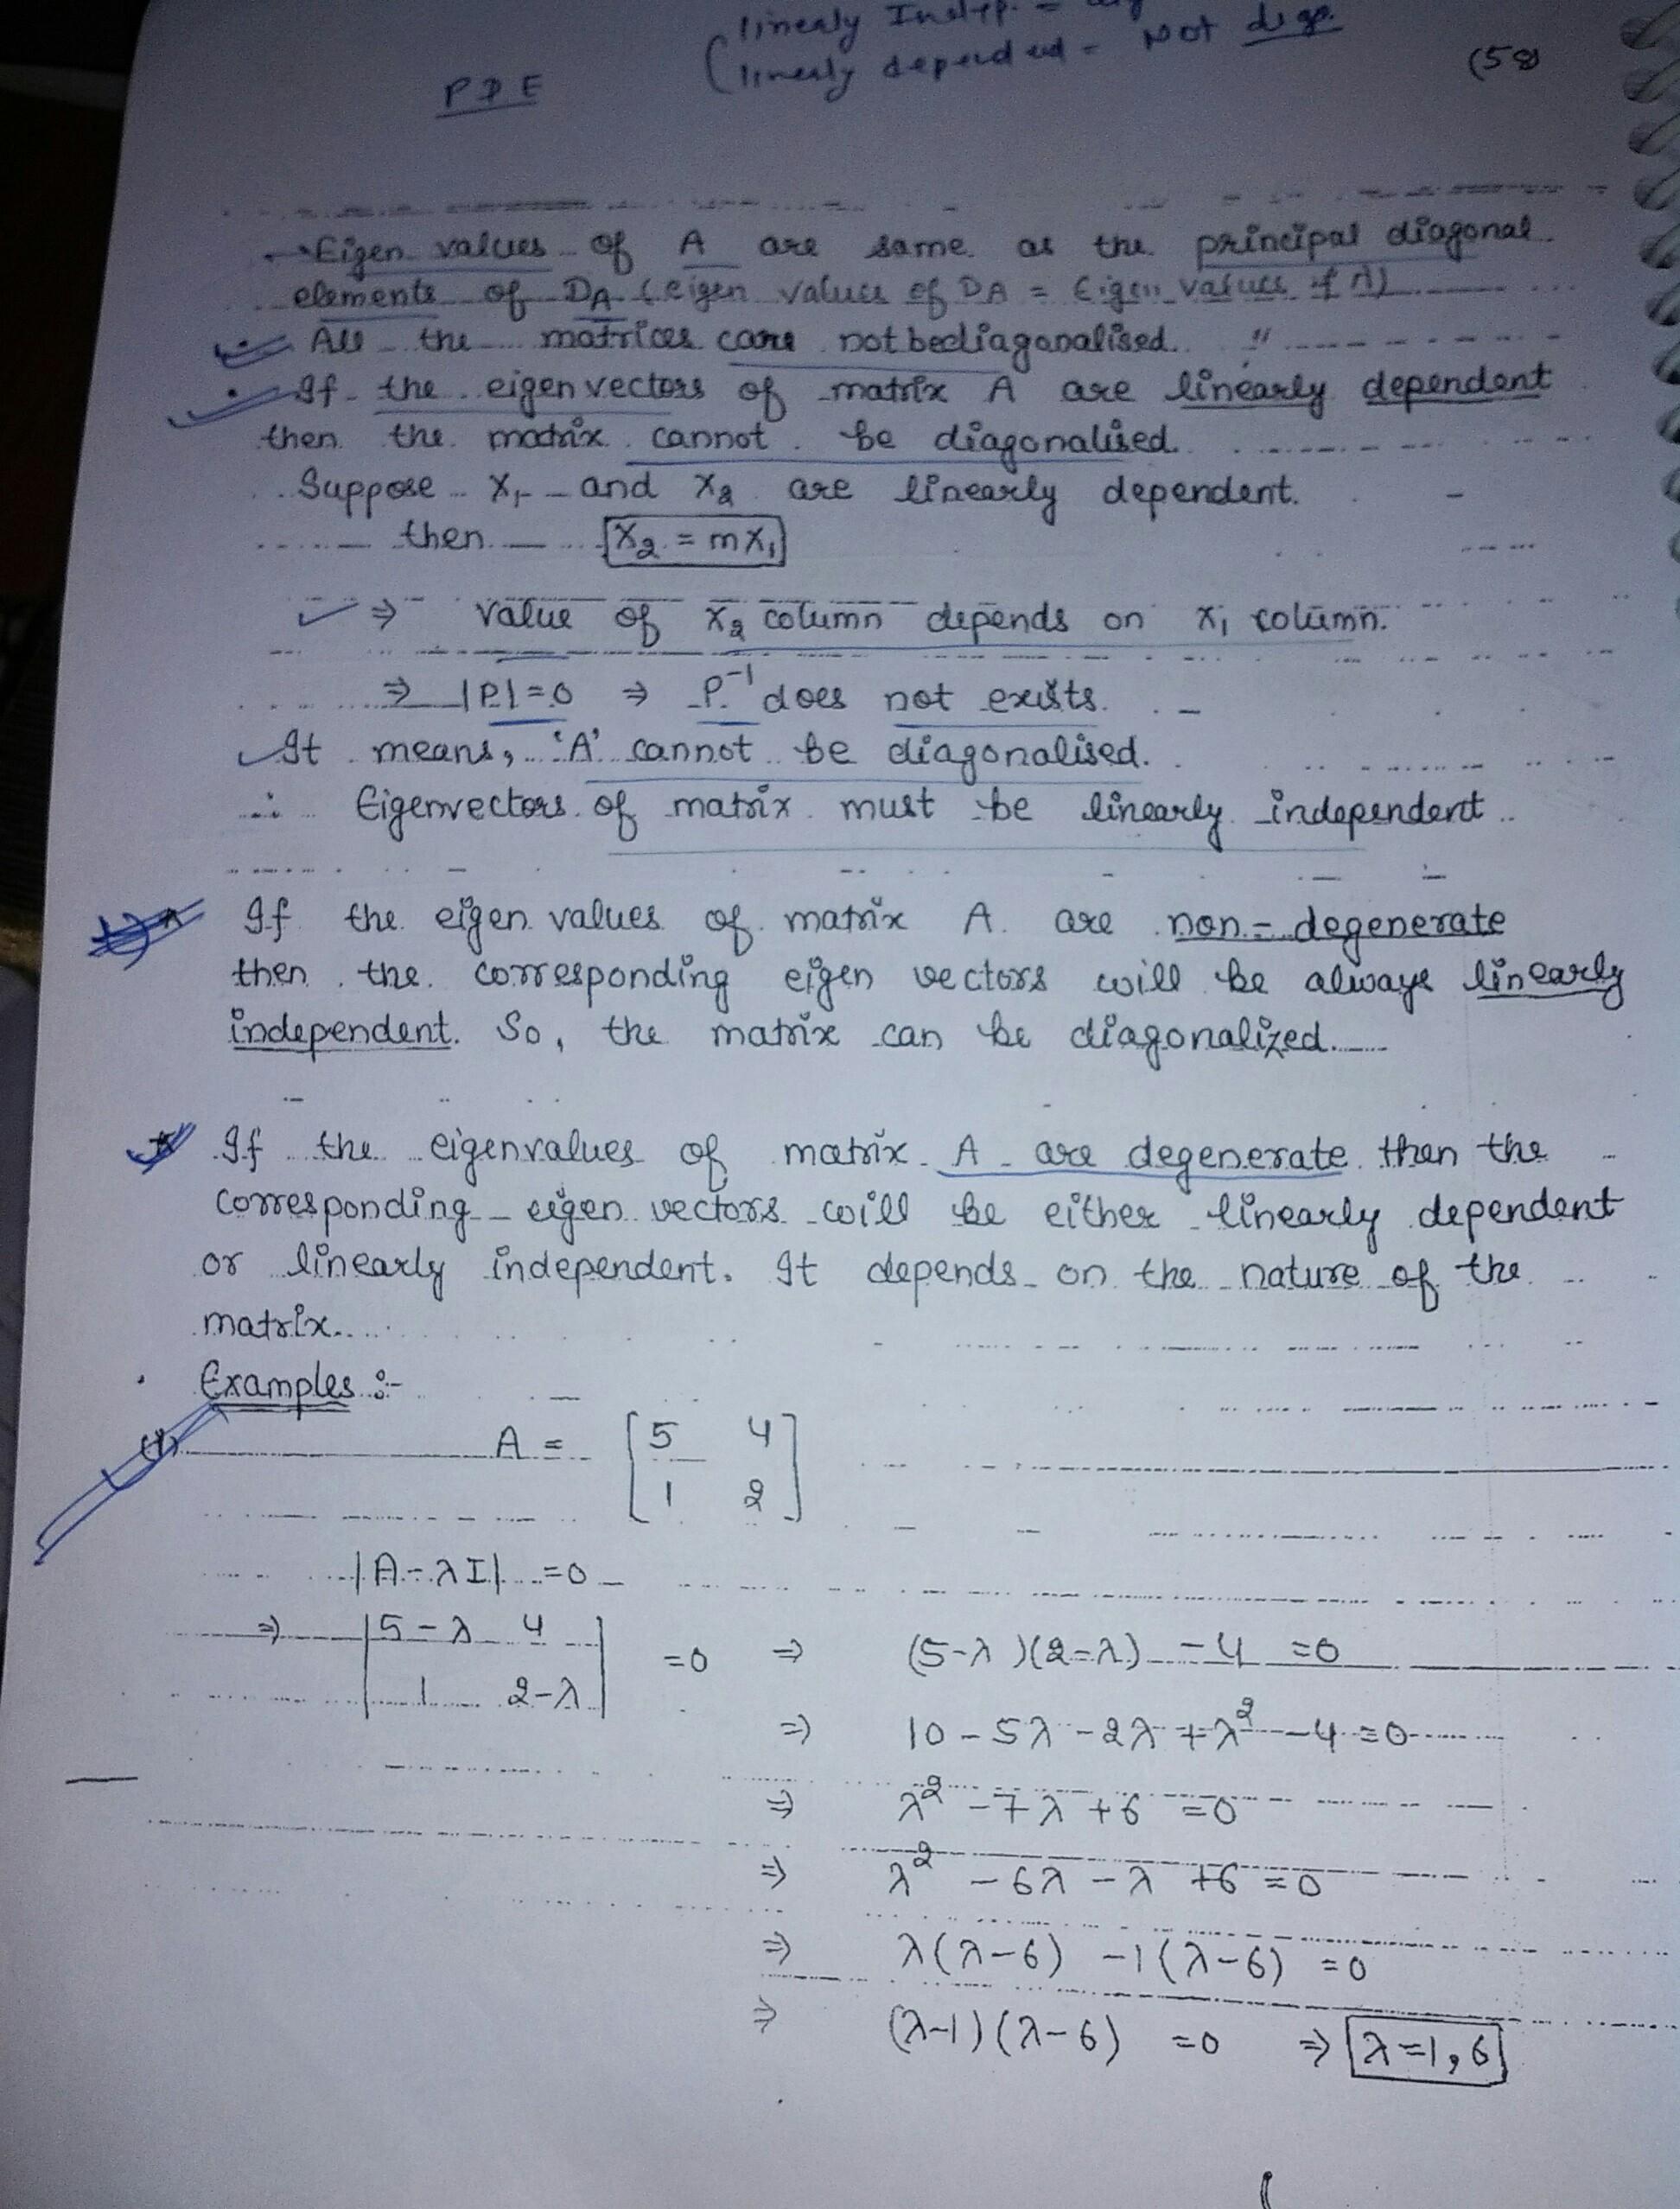 linealy Indep. =
(linealy depended = Not diga.
PDE
(58)
→ Eigen values of A are same as the principal diagonal
elements of DA (eigen values of DA = Eigen values of A)
• All the matrices cane not bediagonalised. "
• If the eigenvectors of matrix A are linearly dependent
then the matrix cannot be diagonalised.
Suppose X₁ and X₂ are linearly dependent.
then X₂ = mX₁
⇒ value of X₂ column depends on X₁ column.
⇒ |P| = 0 ⇒ P⁻¹ does not exists.
It means, 'A' cannot be diagonalised.
∴ Eigenvectors of matrix must be linearly independent
If the eigen values of matrix A are non-degenerate
then the corresponding eigen vectors will be always linearly
independent. So, the matrix can be diagonalized.
If the eigenvalues of matrix A are degenerate then the
corresponding eigen vectors will be either linearly dependent
or linearly independent. It depends on the nature of the
matrix.
• Examples :-
(1) A = [5 4
1 2]
|A - λI| = 0
⇒ |5-λ 4
1 2-λ| = 0 ⇒ (5-λ)(2-λ) - 4 = 0
⇒ 10 - 5λ - 2λ + λ² - 4 = 0
⇒ λ² - 7λ + 6 = 0
⇒ λ² - 6λ - λ + 6 = 0
⇒ λ(λ-6) -1(λ-6) = 0
⇒ (λ-1)(λ-6) = 0 ⇒ λ = 1, 6